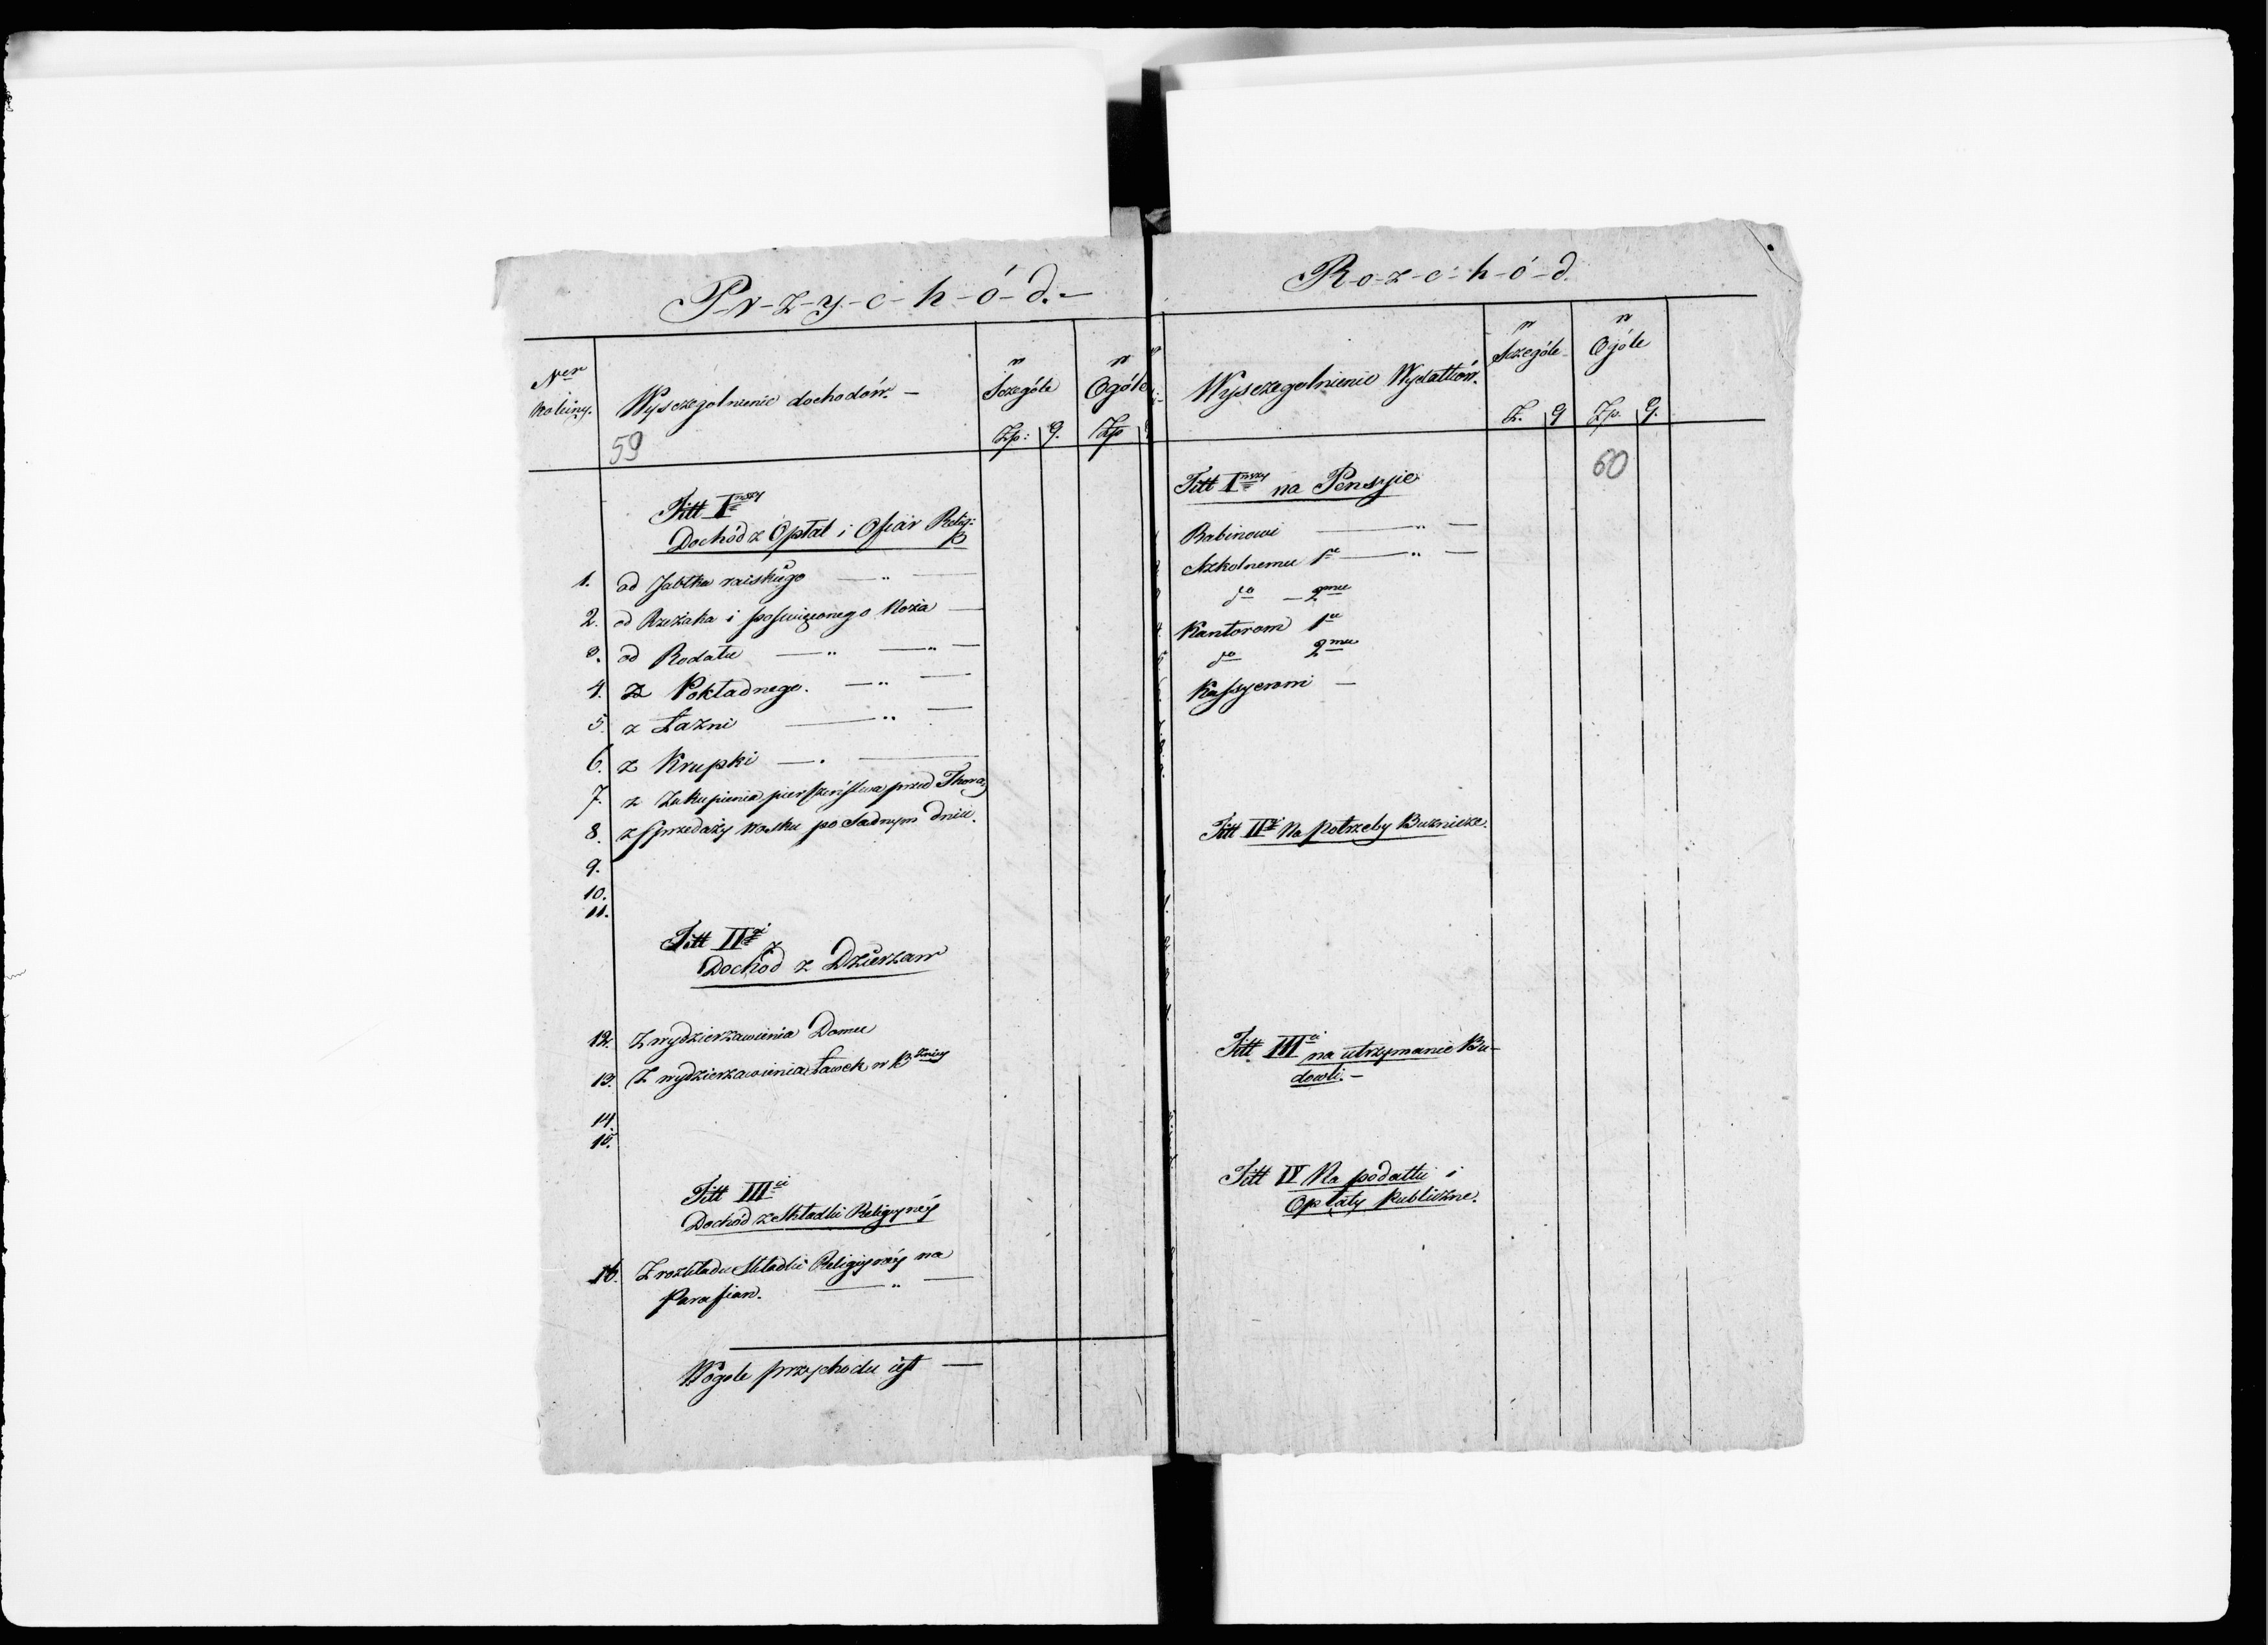 P-r-z-y-c-h-ó-d.-
Ner
koleiny.
Wysczegolnienie dochodów. -
w
Sczególe
Zp: g.
w
Ogóle
Zp
59
Titt Iwszy
Dochód z Opłat i Ofiar Relig:
1. od Jabłka raiskiego — „ —
2. od Rzezaka i poswięconego Noża —
3. od Rodału — „ — „ —
4. z Pokładnego. — „ —
5. z Łazni — „ —
6. z Krupki — . —
7. z Zakupienia pierszeństwa przed Thorą
8. z sprzedaży wosku po Sadnym dniu.
9.
10.
11.
Titt IIgi
Dochód z Dzierzaw
12. Z wydzierzawienia Domu
13. Z wydzierzawienia Ławek w Bżnicy
14.
15.
Titt IIIci
Dochód z Składki Religyney
16. Z rozkładu Składki Religyney na
Parafian. — „ —
Wogole przychodu iest —
R-o-z-c-h-ó-d.
Wysczegolnienie Wydatków.
w
Sczególe
Z. g
w
Ogóle
Zp. g.
60
Titt Iwszy na Pensyie
Rabinowi — „ —
Szkolnemu 1u — „ —
do — 2mu
Kantorom 1u
do 2mu
Kassyerowi —
Titt IIgi Na potrzeby Buznicze.
Titt IIIci na utrzymanie Bu-
dowli. -
Titt IV Na podatki i
Opłaty Publiczne.